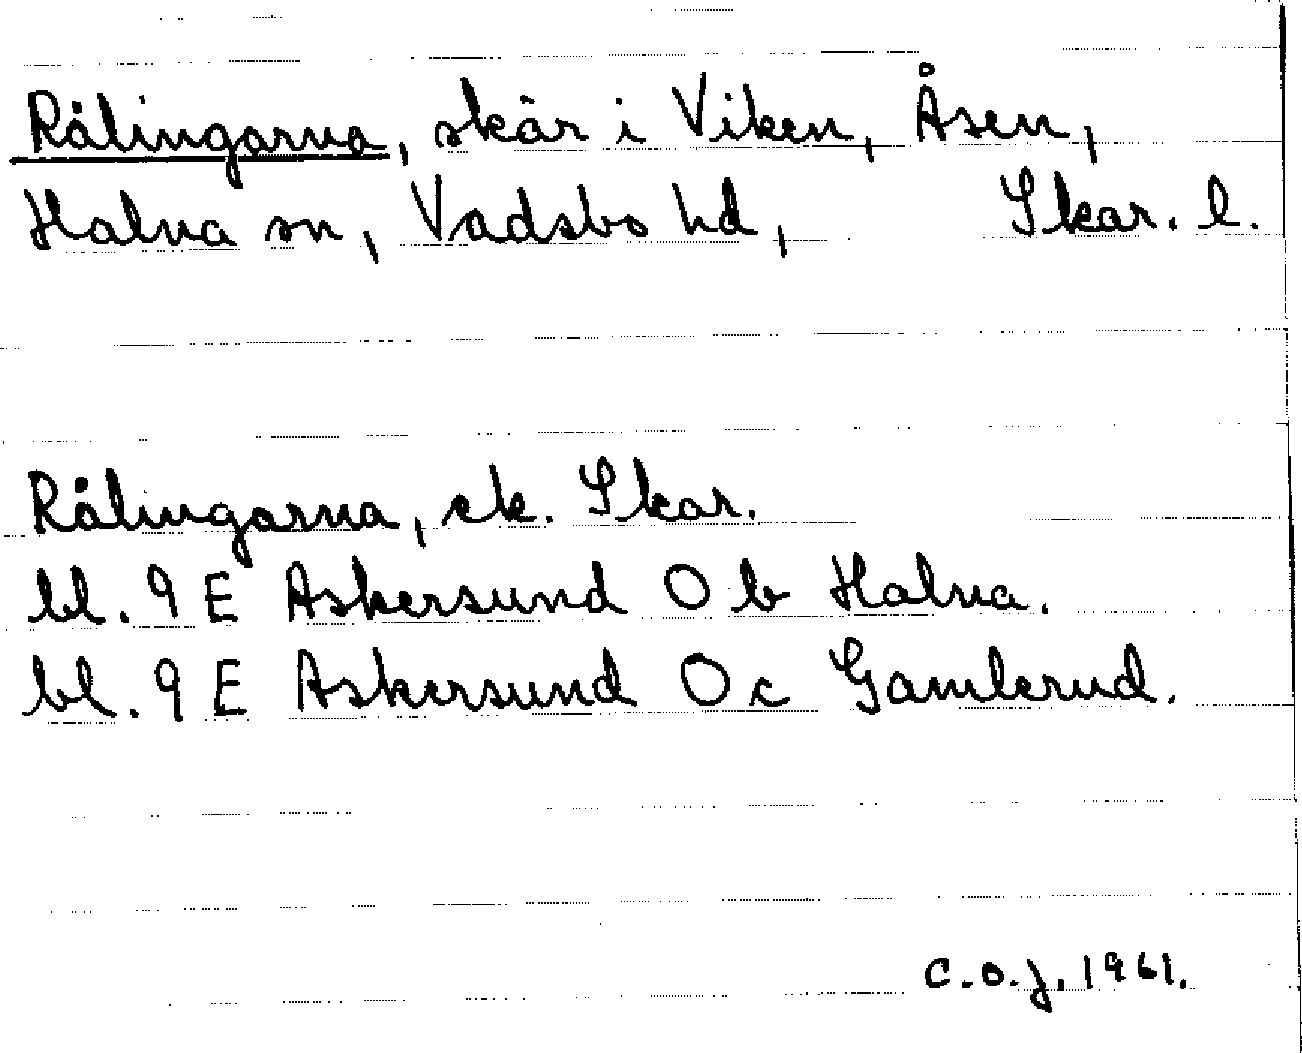 Rålingarna, skär i Viken, Åsen,
Halna sn, Vadsbo hd, Skar. l.
Rålingarna, ek. Skar.
bl. 9 E Askersund 0 b Halna.
bl. 9 E Askersund 0 c Gamlerud.
C.O.J. 1961.